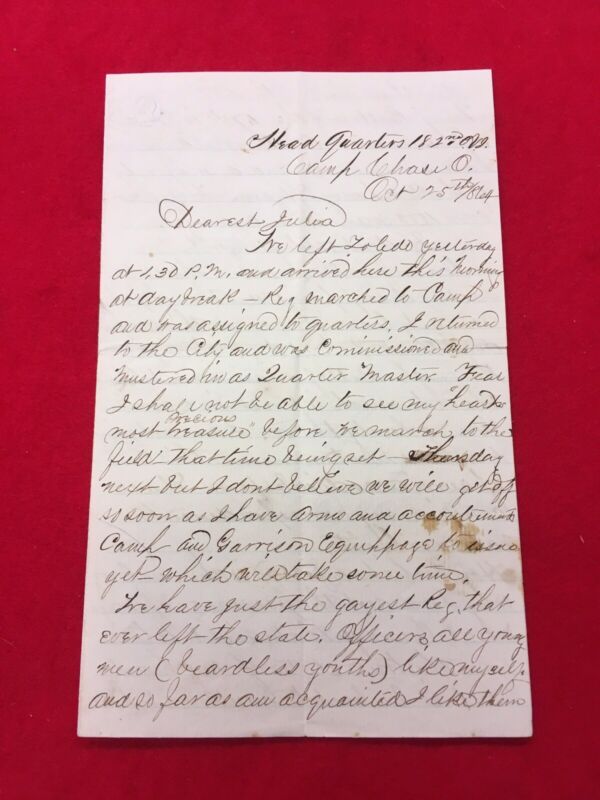 Head Quarters 182nd O.V.I.
Camp Chase O.
Oct 25th/64
Dearest Julia
We left Toledo yesterday
at 1.30 P.M. and arrived here this morning
at daybreak – Reg marched to Camp
and was assigned to quarters. I returned
to the City and was commissioned and
mustered in as Quarter Master. Fear
I shall not be able to see my "hearts
most precious treasure" before we march to the
field that time being set Thursday
next but I dont believe we will get off
so soon as I have Arms and accoutrements
Camp and Garrison Equippage to issue
yet – which will take some time.
We have just the gayest Reg. that
ever left the state. Officers all young
men (beardless youths) like myself
and so far as am acquainted I like them